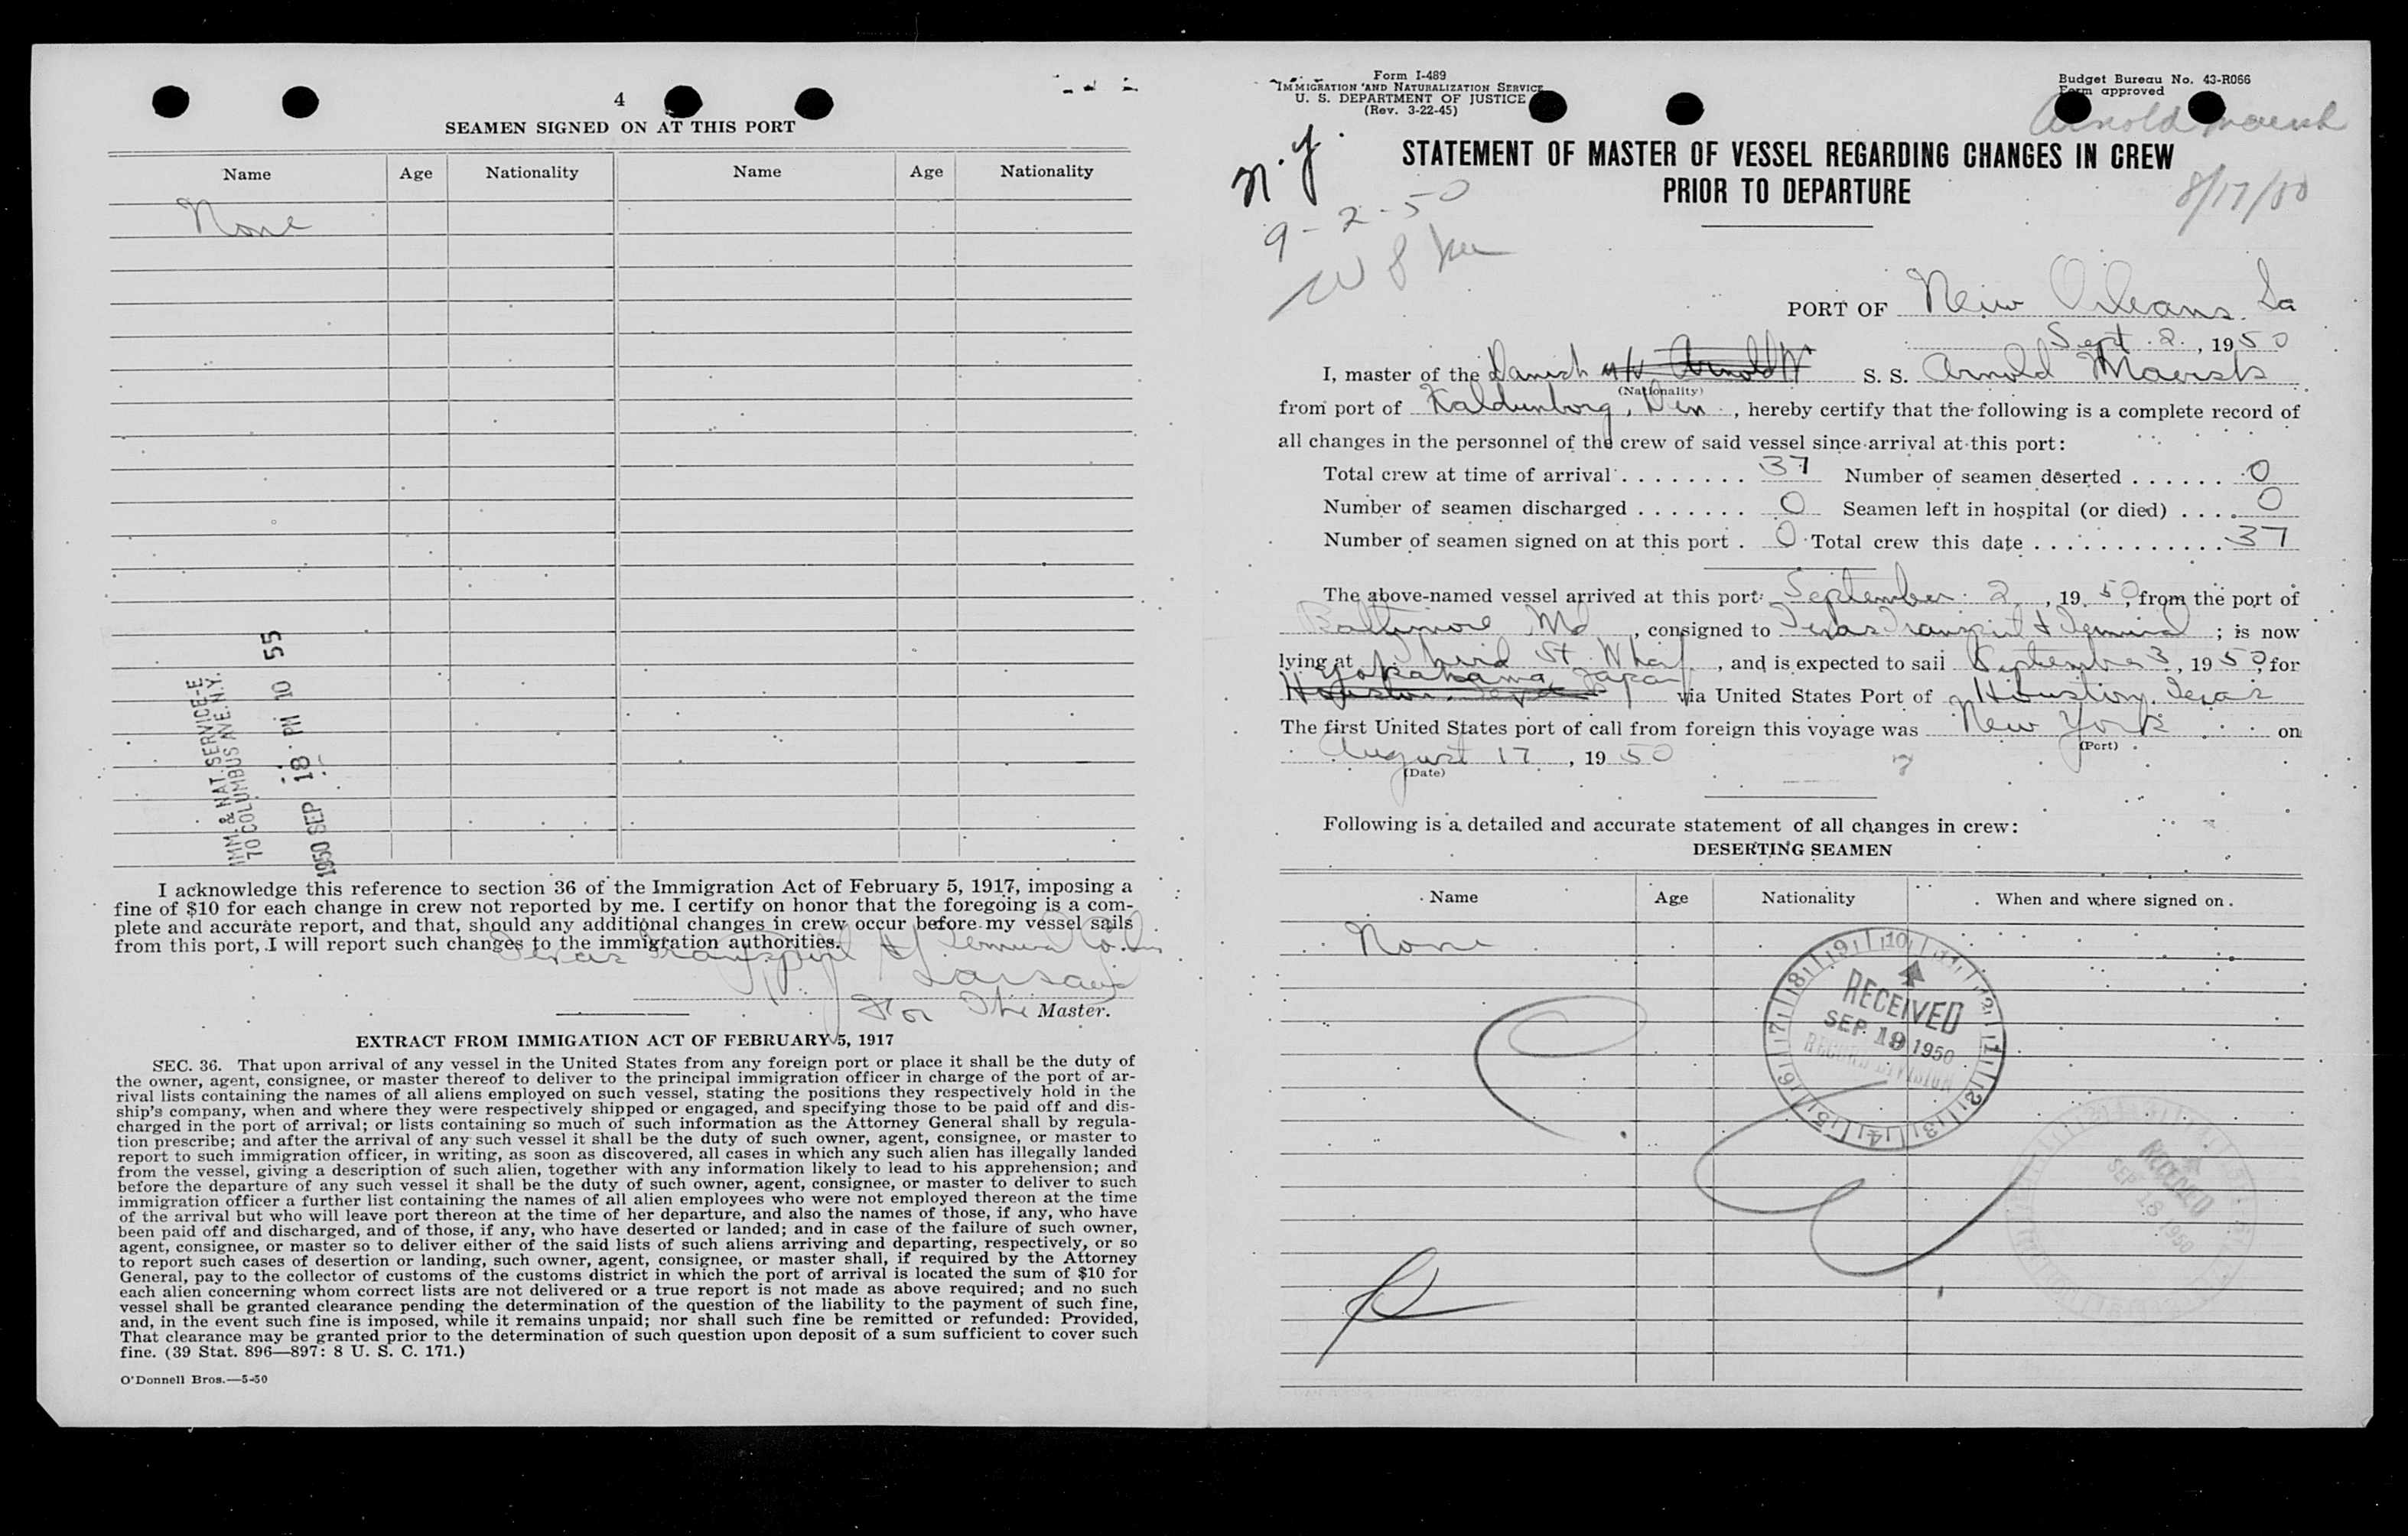 4
SEAMEN SIGNED ON AT THIS PORT
Name Age Nationality Name Age Nationality
None
IMM. & NAT. SERVICE-E
70 COLUMBUS AVE. N.Y.
1950 SEP 18 PM 10 55
I acknowledge this reference to section 36 of the Immigration Act of February 5, 1917, imposing a
fine of $10 for each change in crew not reported by me. I certify on honor that the foregoing is a com-
plete and accurate report, and that, should any additional changes in crew occur before my vessel sails
from this port, I will report such changes to the immigration authorities.
Texas Transport & Terminal Co. Inc
For The Master.
EXTRACT FROM IMMIGATION ACT OF FEBRUARY 5, 1917
SEC. 36. That upon arrival of any vessel in the United States from any foreign port or place it shall be the duty of
the owner, agent, consignee, or master thereof to deliver to the principal immigration officer in charge of the port of ar-
rival lists containing the names of all aliens employed on such vessel, stating the positions they respectively hold in the
ship's company, when and where they were respectively shipped or engaged, and specifying those to be paid off and dis-
charged in the port of arrival; or lists containing so much of such information as the Attorney General shall by regula-
tion prescribe; and after the arrival of any such vessel it shall be the duty of such owner, agent, consignee, or master to
report to such immigration officer, in writing, as soon as discovered, all cases in which any such alien has illegally landed
from the vessel, giving a description of such alien, together with any information likely to lead to his apprehension; and
before the departure of any such vessel it shall be the duty of such owner, agent, consignee, or master to deliver to such
immigration officer a further list containing the names of all alien employees who were not employed thereon at the time
of the arrival but who will leave port thereon at the time of her departure, and also the names of those, if any, who have
been paid off and discharged, and of those, if any, who have deserted or landed; and in case of the failure of such owner,
agent, consignee, or master so to deliver either of the said lists of such aliens arriving and departing, respectively, or so
to report such cases of desertion or landing, such owner, agent, consignee, or master shall, if required by the Attorney
General, pay to the collector of customs of the customs district in which the port of arrival is located the sum of $10 for
each alien concerning whom correct lists are not delivered or a true report is not made as above required; and no such
vessel shall be granted clearance pending the determination of the question of the liability to the payment of such fine,
and, in the event such fine is imposed, while it remains unpaid; nor shall such fine be remitted or refunded: Provided,
That clearance may be granted prior to the determination of such question upon deposit of a sum sufficient to cover such
fine. (39 Stat. 896—897: 8 U. S. C. 171.)
O'Donnell Bros.—5-50
Form I-489
IMMIGRATION AND NATURALIZATION SERVICE
U. S. DEPARTMENT OF JUSTICE
(Rev. 3-22-45)
Budget Bureau No. 43-R066
Form approved
Arnold Maersk
8/17/50
N.Y.
9-2-50
STATEMENT OF MASTER OF VESSEL REGARDING CHANGES IN CREW
PRIOR TO DEPARTURE
PORT OF New Orleans, La
Sept. 2, 1950
I, master of the Danish M/V Arnold S. S. Arnold Maersk
(Nationality)
from port of Kaldunborg, Den, hereby certify that the following is a complete record of
all changes in the personnel of the crew of said vessel since arrival at this port:
Total crew at time of arrival 37 Number of seamen deserted 0
Number of seamen discharged 0 Seamen left in hospital (or died) 0
Number of seamen signed on at this port 0 Total crew this date 37
The above-named vessel arrived at this port: September 2, 1950, from the port of
Baltimore Md, consigned to Texas Transport & Terminal; is now
lying at Third St. Wharf, and is expected to sail September 3, 1950, for
Yokahama, Japan
Houston, Texas via United States Port of Houston, Texas
The first United States port of call from foreign this voyage was New York on
(Port)
August 17, 1950
(Date)
Following is a detailed and accurate statement of all changes in crew:
DESERTING SEAMEN
Name Age Nationality When and where signed on.
None
RECEIVED
SEP. 19 1950
RECORD DIVISION
RECEIVED
SEP 18 1950